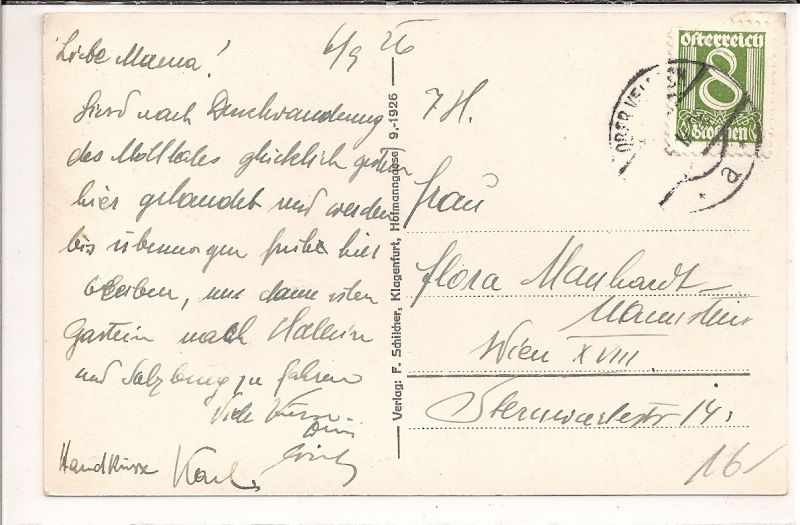 Liebe Mama!
6/9 26
Sind nach Durchwanderung
des Mölltales glücklich gestern
hier gelandet und werden
bis übermorgen früh hier
bleiben, um dann über
Gastein nach Hallein
und Salzburg zu fahren
Viele Küsse
Handküsse Karl
Verlag: F. Schilcher, Klagenfurt, Hofmanngasse) 9.-1926
Österreich
8
Groschen
OBER VEL
a
Frau
Flora Manhardt-
Mannstein
Wien XVIII
Sternwartestr 14.
16/